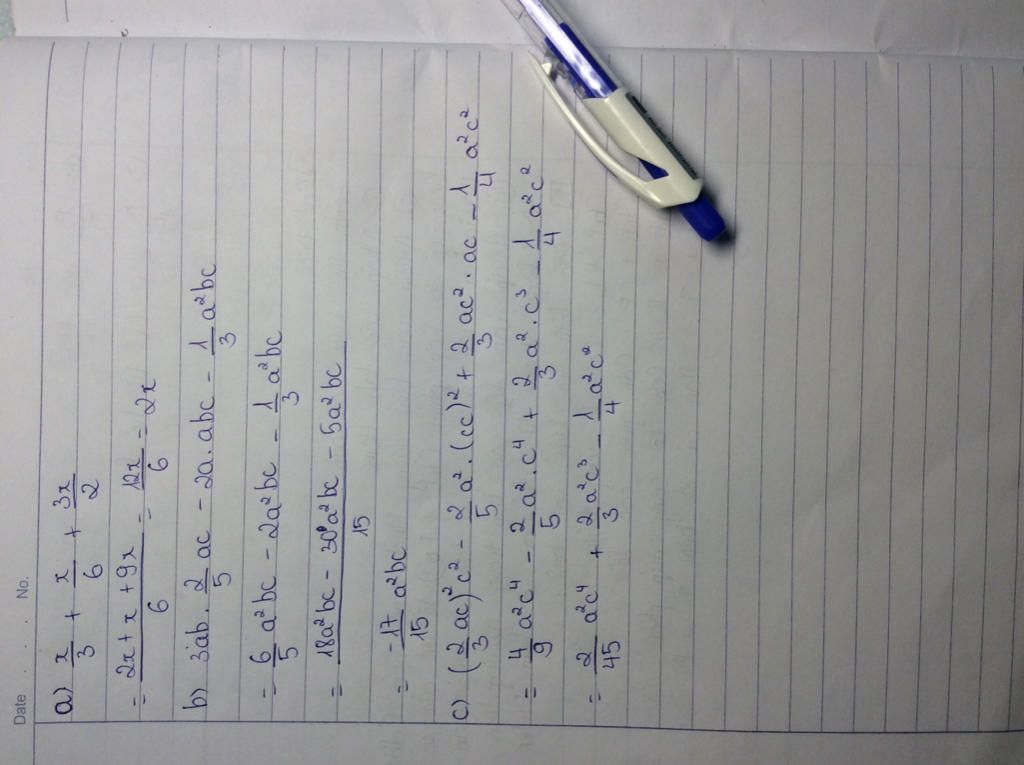 Date . . . No.
a) x/3 + x/6 + 3x/2
= (2x + x + 9x)/6 = 12x/6 = 2x
b) 3ab . 2/5 ac - 2a . abc - 1/3 a²bc
= 6/5 a²bc - 2a²bc - 1/3 a²bc
= (18a²bc - 30a²bc - 5a²bc)/15
= -17/15 a²bc
c) (2/3 ac)² c² - 2/5 a² . (cc)² + 2/3 ac² . ac - 1/4 a²c²
= 4/9 a²c⁴ - 2/5 a² . c⁴ + 2/3 a² . c³ - 1/4 a²c²
= 2/45 a²c⁴ + 2/3 a²c³ - 1/4 a²c²